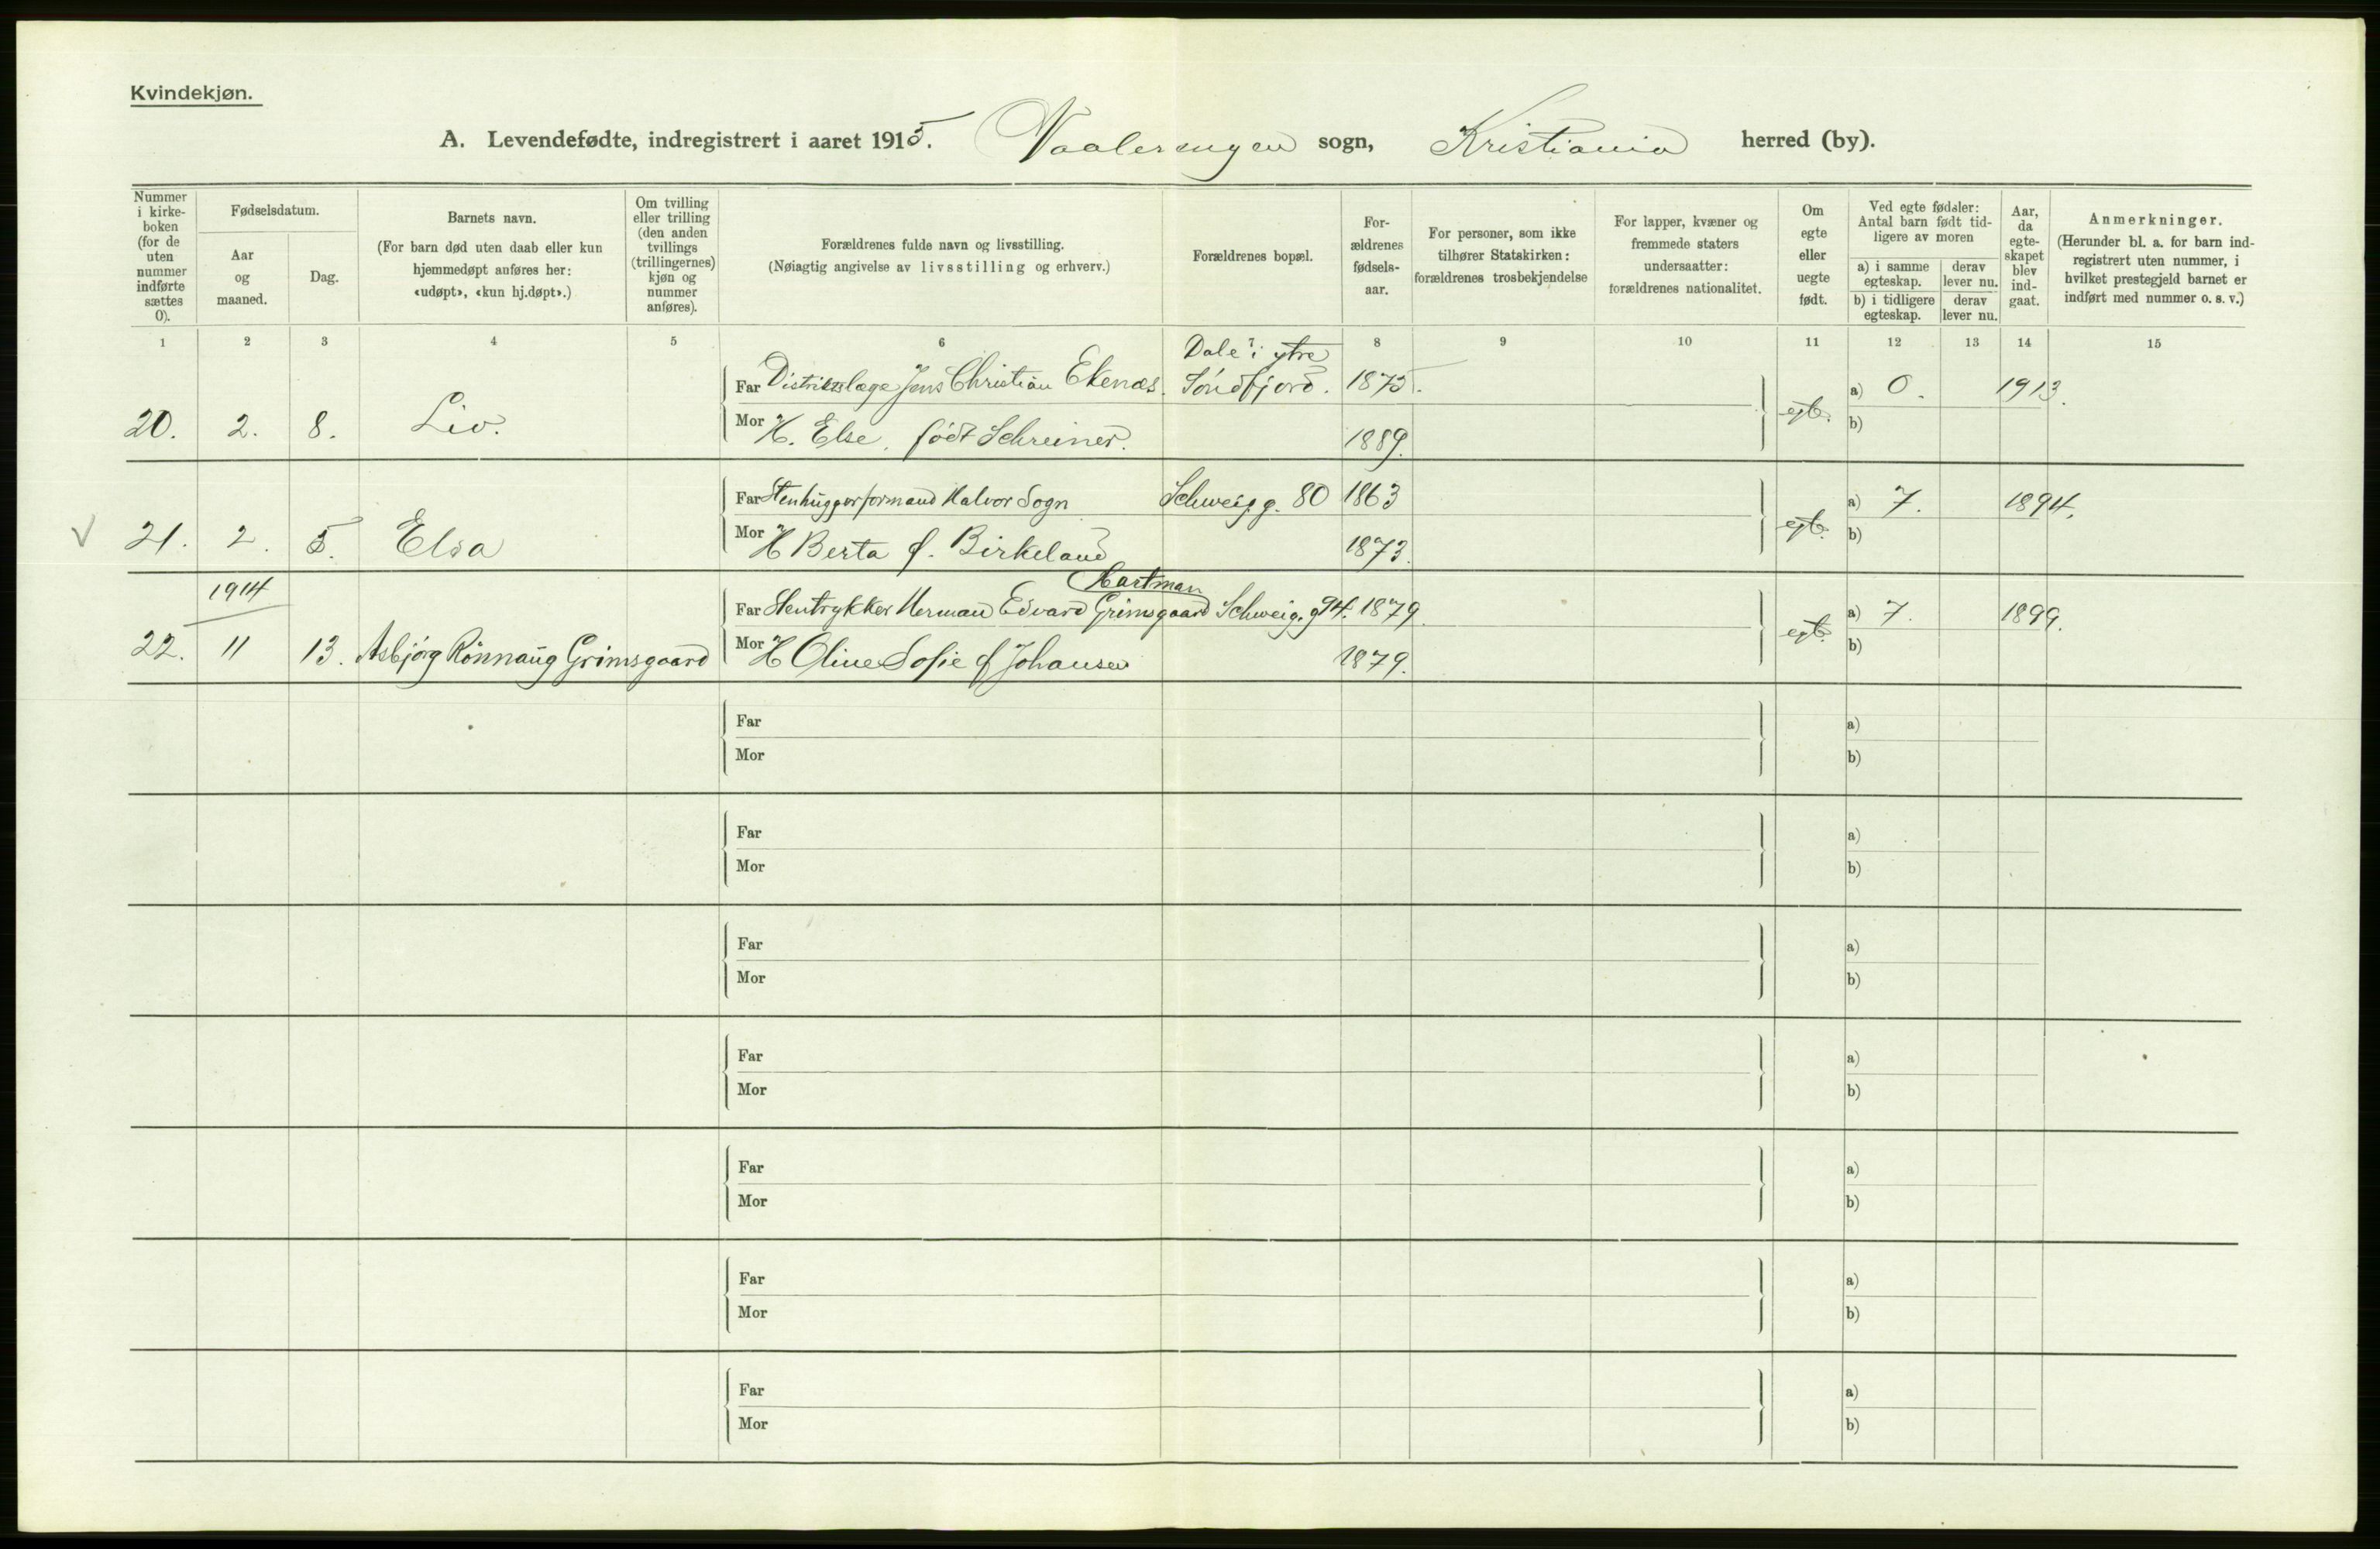 Kvindekjøn.
A. Levendefødte, indregistrert i aaret 1915. Vaalerengen sogn, Kristiania herred (by).
Nummer i kirke-boken (for de uten nummer indførte sættes 0).
Fødselsdatum.
Aar og maaned.
Dag.
Barnets navn.
(For barn død uten daab eller kun hjemmedøpt anføres her: «udøpt», «kun hj.døpt».)
Om tvilling eller trilling (den anden tvillings (trillingernes) kjøn og nummer anføres).
Forældrenes fulde navn og livsstilling.
(Nøiagtig angivelse av livsstilling og erhverv.)
Forældrenes bopæl.
For-ældrenes fødsels-aar.
For personer, som ikke tilhører Statskirken: forældrenes trosbekjendelse
For lapper, kvæner og fremmede staters undersaatter: forældrenes nationalitet.
Om egte eller uegte født.
Ved egte fødsler: Antal barn født tid-ligere av moren
a) i samme egteskap.
derav lever nu.
b) i tidligere egteskap.
derav lever nu.
Aar, da egte-skapet blev ind-gaat.
Anmerkninger.
(Herunder bl. a. for barn ind-registrert uten nummer, i hvilket prestegjeld barnet er indført med nummer o. s. v.)
1 2 3 4 5 6 8 9 10 11 12 13 14 15
Dale i ytre
Far Distriktslæge Jens Christian Ekenæs. Söndfjord. 1875. a) 0. 1913.
20. 2. 8. Liv. Mor H. Else, født Schreiner. 1889. egte. b)
Far Stenhuggerformand Halvor Sogn Schweigg. 80 1863 a) 7. 1894.
V 21. 2. 5. Elsa Mor H Berta f. Birkeland 1873. egte. b)
1914 Hartman
Far Stentrykker Herman Edvard Grimsgaard Schweig. g 94. 1879. a) 7. 1899.
22. 11 13. Asbjörg Rönnaug Grimsgaard Mor H Oline Sofie f Johansen 1879. egte. b)
Far a)
Mor b)
Far a)
Mor b)
Far a)
Mor b)
Far a)
Mor b)
Far a)
Mor b)
Far a)
Mor b)
Far a)
Mor b)